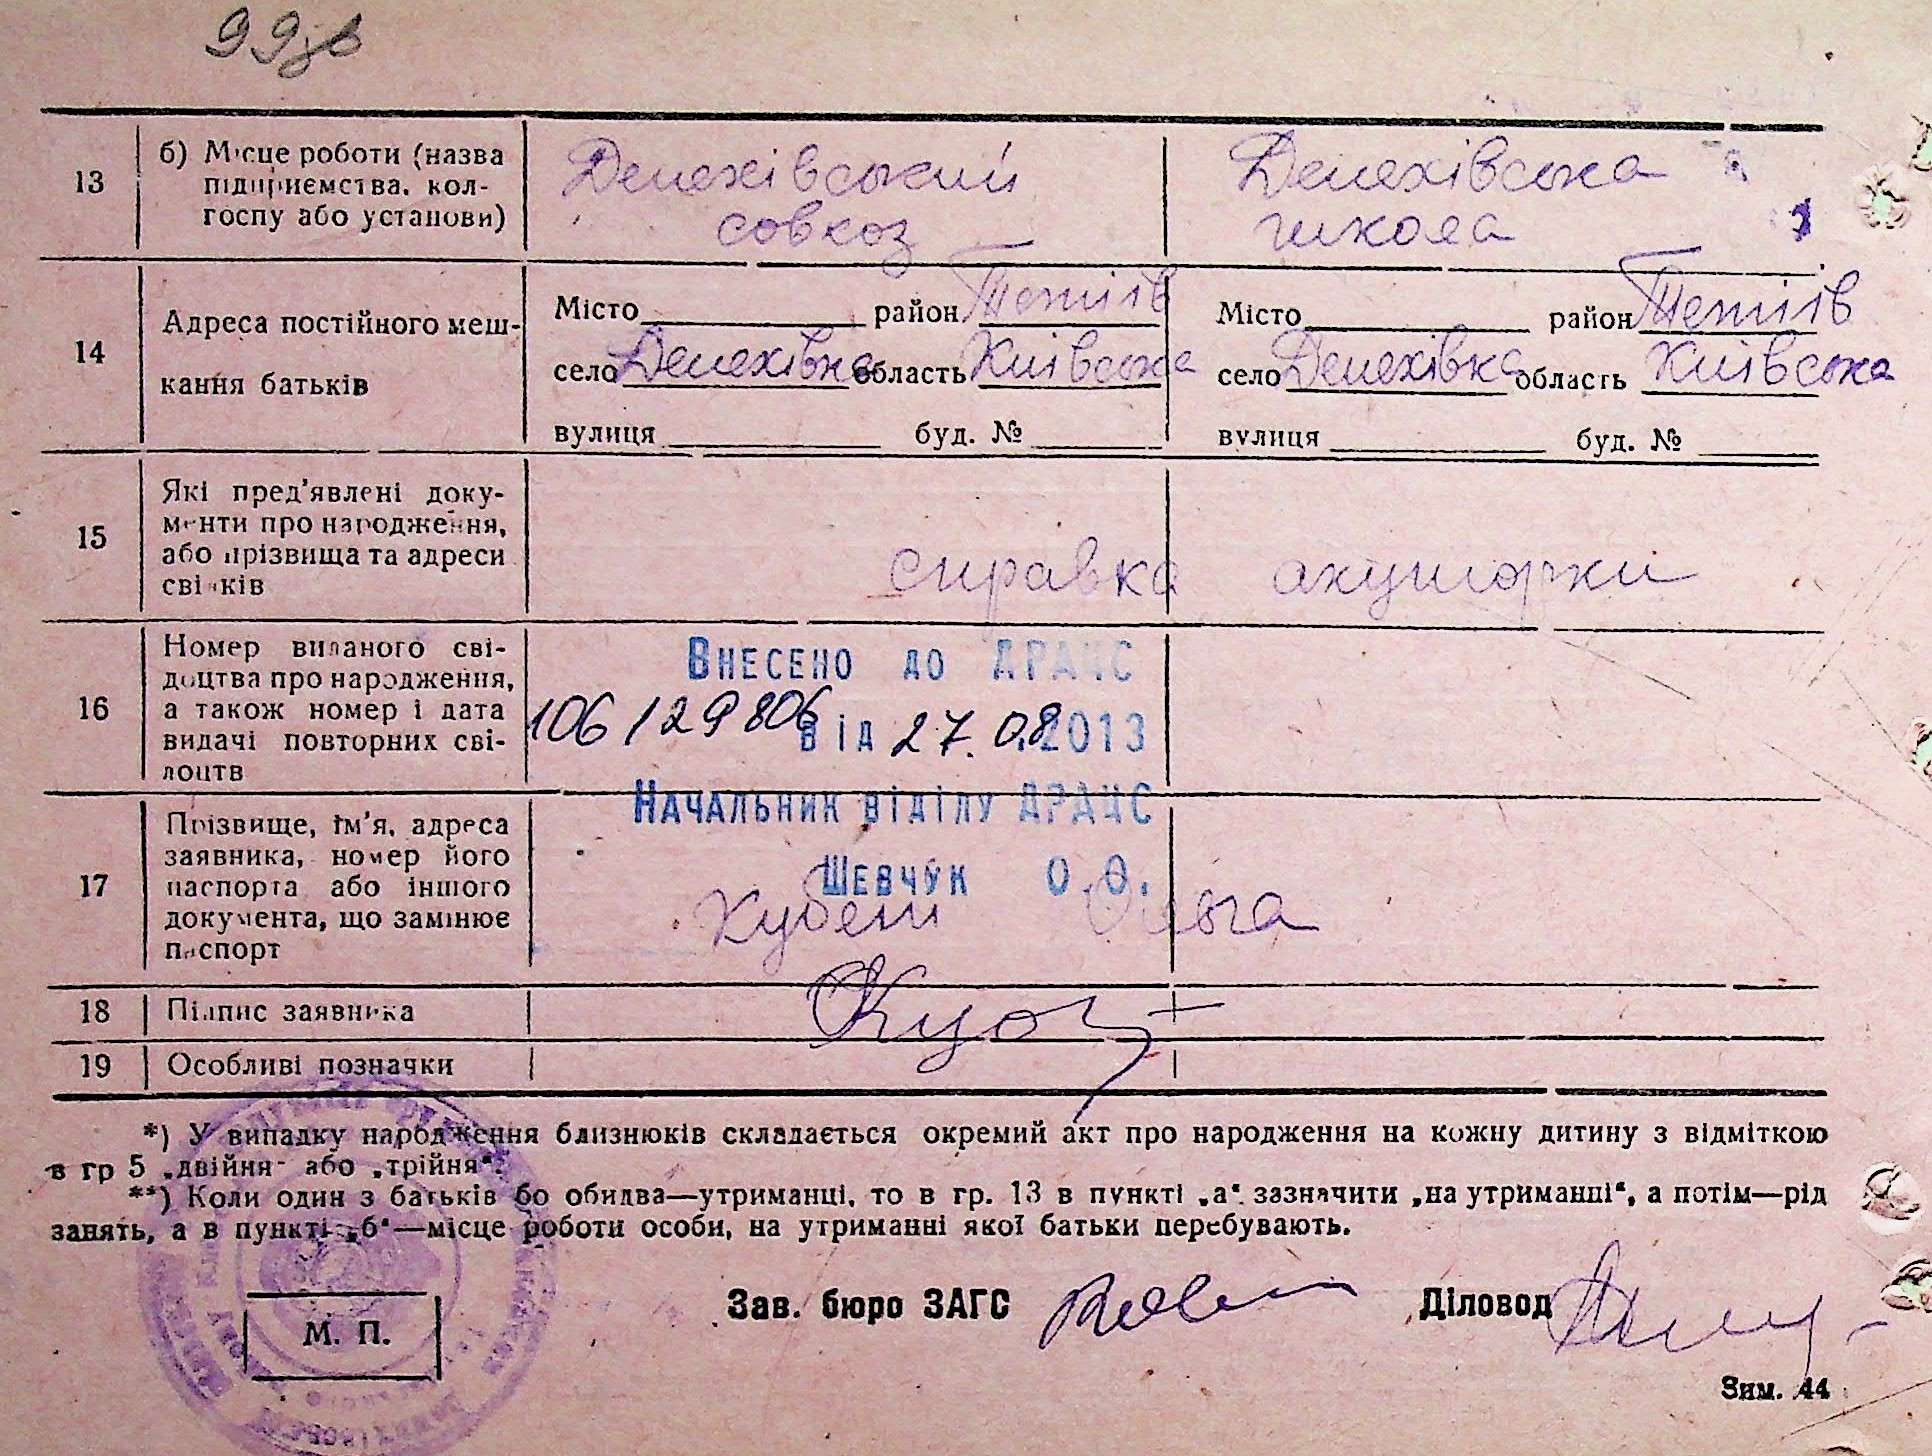 99зв
13
б) Місце роботи (назва
підприємства. кол-
госпу або установи)
Денехівський
совхоз
Денехівська
школа
14
Адреса постійного меш-
кання батьків
Місто район Тетіїв
село Денехівка область Київська
вулиця буд. №
Місто район Тетіїв
село Денехівка область Київська
вулиця буд. №
15
Які пред'явлені доку-
менти про народження,
або прізвища та адреси
свідків
справка акушорки
16
Номер виданого сві-
доцтва про народження,
а також номер і дата
видачі повторних сві-
доцтв
Внесено до ДРАЦС
106129806 від 27.08.2013
Начальник відділу ДРАЦС
Шевчук О.О.
17
Прізвище, ім'я, адреса
заявника, номер його
паспорта або іншого
документа, що замінює
паспорт
Ольга
18
Підпис заявника
19
Особливі позначки
*) У випадку народження близнюків складається окремий акт про народження на кожну дитину з відміткою
в гр 5 „двійня" або „трійня".
**) Коли один з батьків бо обидва—утриманці, то в гр. 13 в пункті „а" зазначити „на утриманці", а потім—рід
занять, а в пункті „б"—місце роботи особи, на утриманні якої батьки перебувають.
Зав. бюро ЗАГС
Діловод
М. П.
Зим. 44